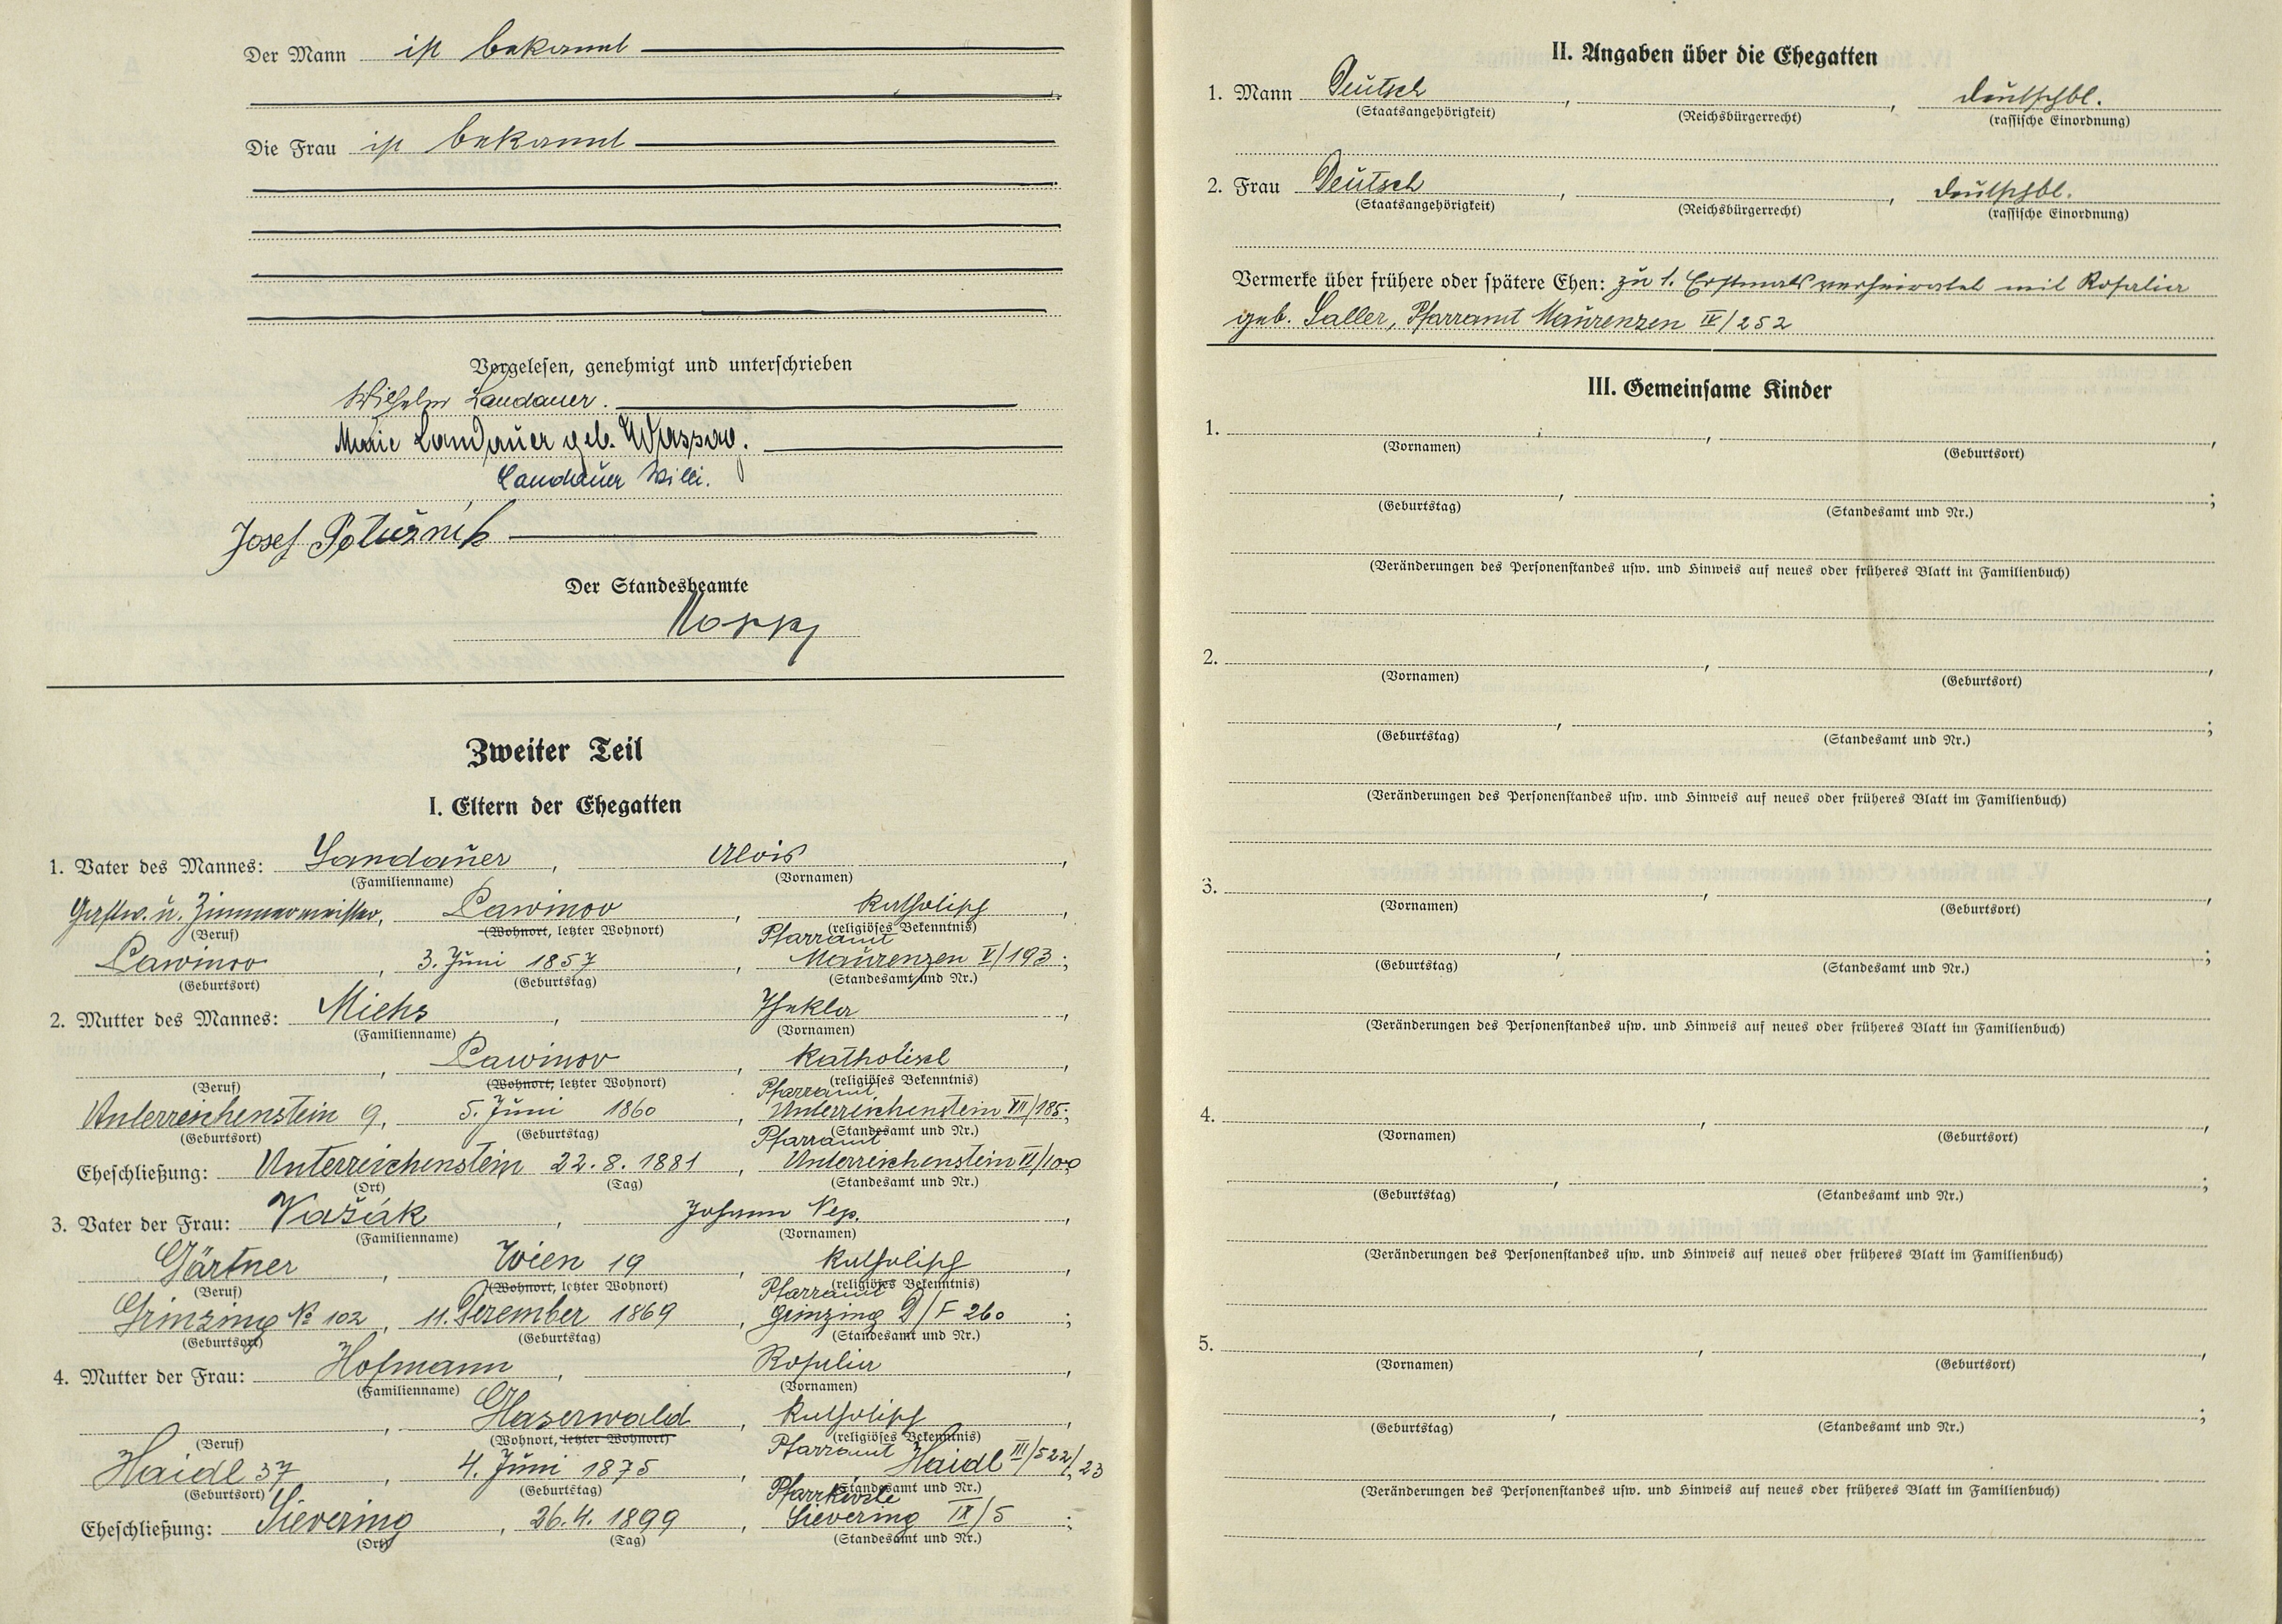 Der Mann ist bekannt
Die Frau ist bekannt
Vorgelesen, genehmigt und unterschrieben
Wilhelm Landauer.
Marie Landauer geb.
Landauer Willi.
Josef
Der Standesbeamte
Zweiter Teil
I. Eltern der Ehegatten
1. Vater des Mannes: Landauer, Alois,
(Familienname) (Vornamen)
Gastw. u. Zimmermeister, Lawinov, katholisch,
(Beruf) (Wohnort, letzter Wohnort) (religiöses Bekenntnis)
Pfarramt
Lawinov, 3. Juni 1857, Maurenzen V/193;
(Geburtsort) (Geburtstag) (Standesamt und Nr.)
2. Mutter des Mannes: Michs, Thekla,
(Familienname) (Vornamen)
, Lawinov, katholisch,
(Beruf) (Wohnort, letzter Wohnort) (religiöses Bekenntnis)
Pfarramt
Unterreichenstein 9, 5. Juni 1860, Unterreichenstein VII/185;
(Geburtsort) (Geburtstag) (Standesamt und Nr.)
Pfarramt
Eheschließung: Unterreichenstein 22.8.1881, Unterreichenstein VI/100
(Ort) (Tag) (Standesamt und Nr.)
3. Vater der Frau: Vašák, Johann Nep.,
(Familienname) (Vornamen)
Gärtner, Wien 19, katholisch,
(Beruf) (Wohnort, letzter Wohnort) (religiöses Bekenntnis)
Pfarramt
Grinzing № 102, 11. Dezember 1869, Grinzing D/F 260;
(Geburtsort) (Geburtstag) (Standesamt und Nr.)
4. Mutter der Frau: Hofmann, Rosalia,
(Familienname) (Vornamen)
, Haserwald, katholisch,
(Beruf) (Wohnort, letzter Wohnort) (religiöses Bekenntnis)
Pfarramt
Haidl 37, 4. Juni 1875, Haidl III/522/23
(Geburtsort) (Geburtstag) (Standesamt und Nr.)
Pfarrkirche
Eheschließung: Sievering, 26.4.1899, Sievering IX/5;
(Ort) (Tag) (Standesamt und Nr.)
II. Angaben über die Ehegatten
1. Mann Deutsch, , deutschbl.
(Staatsangehörigkeit) (Reichsbürgerrecht) (rassische Einordnung)
2. Frau Deutsch, , deutschbl.
(Staatsangehörigkeit) (Reichsbürgerrecht) (rassische Einordnung)
Vermerke über frühere oder spätere Ehen: zu 1. Erstmals verheiratet mit Rosalia
geb. Saller, Pfarramt Maurenzen IV/252
III. Gemeinsame Kinder
1. , ,
(Vornamen) (Geburtsort)
, ;
(Geburtstag) (Standesamt und Nr.)
(Veränderungen des Personenstandes usw. und Hinweis auf neues oder früheres Blatt im Familienbuch)
2. , ,
(Vornamen) (Geburtsort)
, ;
(Geburtstag) (Standesamt und Nr.)
(Veränderungen des Personenstandes usw. und Hinweis auf neues oder früheres Blatt im Familienbuch)
3. , ,
(Vornamen) (Geburtsort)
, ;
(Geburtstag) (Standesamt und Nr.)
(Veränderungen des Personenstandes usw. und Hinweis auf neues oder früheres Blatt im Familienbuch)
4. , ,
(Vornamen) (Geburtsort)
, ;
(Geburtstag) (Standesamt und Nr.)
(Veränderungen des Personenstandes usw. und Hinweis auf neues oder früheres Blatt im Familienbuch)
5. , ,
(Vornamen) (Geburtsort)
, ;
(Geburtstag) (Standesamt und Nr.)
(Veränderungen des Personenstandes usw. und Hinweis auf neues oder früheres Blatt im Familienbuch)